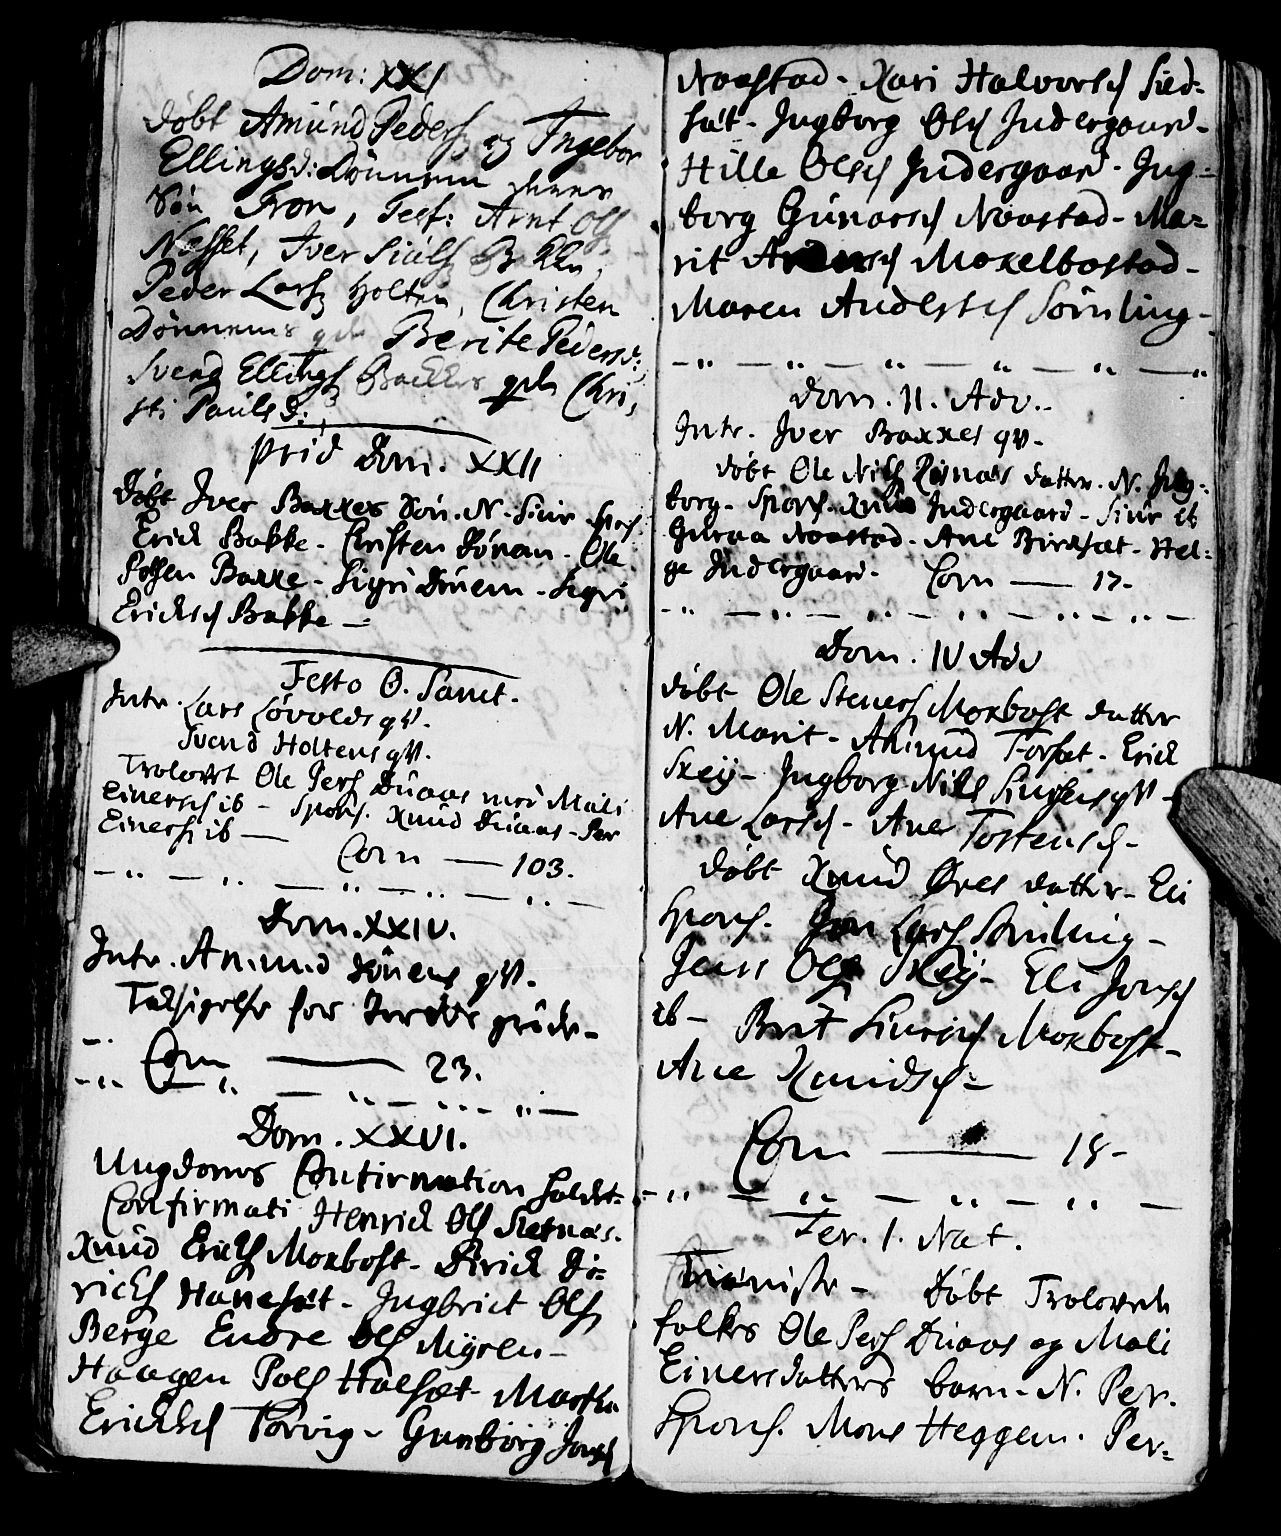 Dom: XXI
døbt Amünd Peders og Ingebor
Ellingsd: Dønnem deres
Søn Iron, Test: Arnt Ols
Nesset, Iver Siuls Bakken,
Peder Lars Holten, Christen
Dønnems qv Berite Pedersd:
Svend Ellings Backkes qvh Chri,
sti Paulsd:
Prid Dom. XXII
døbt Iver Baxxes Søn. N. Siur Spons
Erick Bakke - Christen Dønem - Ole
Polsen Baxxe - Sigri Dønem - Sigri
Ericksd Bakke -
Festo O. Sanct.
Intr. Lars Løvolds qv.
Svend Holtens qv.
Trolovet Ole Pers Duaas med Mali
Einersd ib - Spons. Xnud Duaas - Per
Einers ib -
Corn — 103.
Dom. XXIV.
Intr. Amund Dønems qv.
Taksigelse for Jordens grøde -
Corn — 23.
Dom. XXVI.
Ungdoms Confirmation holdet.
Confirmati Henrick Ols Retnæs.
Xnud Ericks Moxbost - Dirick Di=
ricks Hanesæt - Ingbrict Ols
Berge Endre Ols Myren -
Haagen Pols Halsæt - Martha
Ericksd Torvig - Gunborg Jonsd
Noastad - Kari Halvorsd Sæd=
sæt - Ingborg Olsd Indergaard -
Hille Olsd Indergaard - Ing=
borg Gunarsd Noastad - Ma=
rit Arensd Moxelbostad -
Maren Andersd Sørnling -
Dom. II. Adv.
Intr. Iver Baxxes qv -
døbt Ole Nils Reinæs datter. N. Ing=
borg - Spons. Xnud Indergaard - Siur ib
Guraa Noastad - Ane Birksæt - Hel=
ge Indergaard - Corn — 17 -
Dom. IV Adv
døbt Ole Steners Moxbost datter
N. Marit - Amund Forsæt - Erick
Skeij - Ingborg Nils qv -
Ane Larsd - Ane Tostensd -
døbt Xnud Øres datter - Eli
Spons. Jon Lars Sørnling -
Jens Ols Skeij - Eli Jonsd
ib - Brit Siursd Moxbost -
Ane Knudsd -
Corn — 18 -
Fer. 1. Nat.
døbt Trolovede
folks Ole Pers Duaas og Mali
Einersdatters barn - N. Per.
Spons. Mons Heggem. Per=